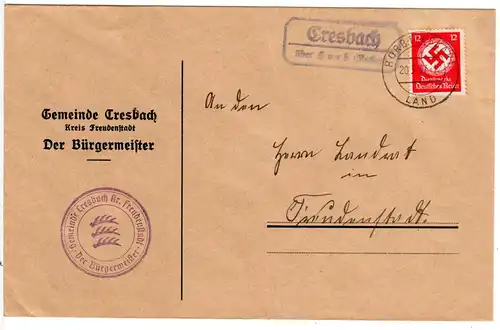 Cresbach
über
HORB
LAND
12 12
Dienstmarke
Deutsches Reich
Gemeinde Cresbach
Kreis Freudenstadt
Der Bürgermeister
An den
Herrn Landrat
in
Freudenstadt.
Gemeinde Cresbach Kr. Freudenstadt
Der Bürgermeister